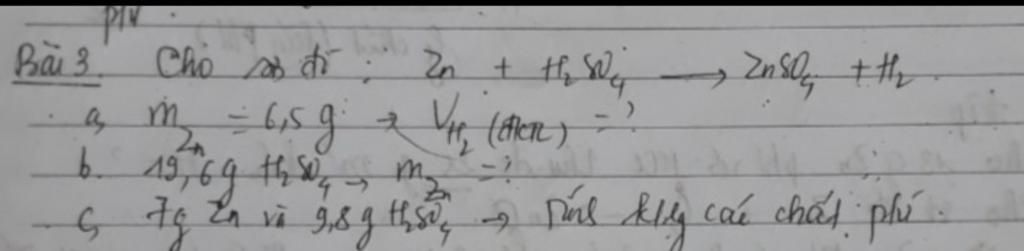 ptr
Bài 3. Cho sơ đồ: Zn + H₂SO₄ → ZnSO₄ + H₂
a, m Zn = 6,5g → V H₂ (đktc) = ?
b. 19,6g H₂SO₄ → m Zn = ?
c, 7g Zn và 9,8g H₂SO₄ → Tính klg các chất